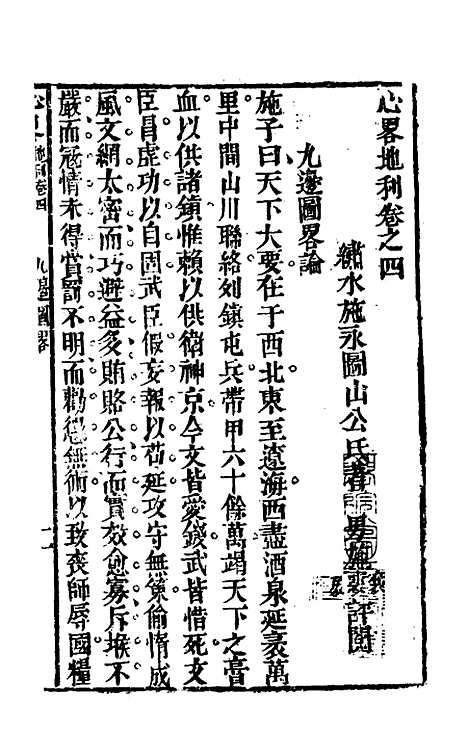 心畧地利卷之四
繡水施永圖山公氏著 男施
評閱
九邊圖畧論
施子曰天下大要在于西北東至遼海西盡酒泉延袤萬
里中間山川聯絡列鎮屯兵帶甲六十餘萬竭天下之膏
血以供諸鎮惟賴以供衛神京今文皆愛錢武皆惜死文
臣昌虛功以自固武臣假妄報以茍延攻守無策偷惰成
風文網太密而巧避益多賄賂公行而實效愈寡斥堠不
嚴而冦情未得賞罰不明而勸懲無術以致喪師辱國糧
地利卷四
九邊圖畧
一